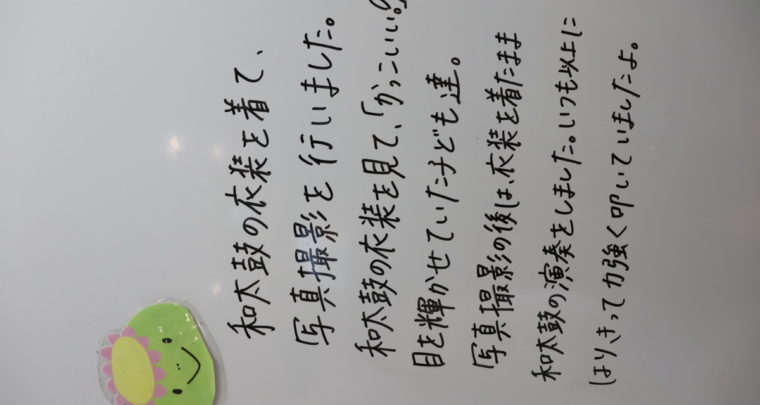 和太鼓の衣装を着て、
写真撮影を行いました。
和太鼓の衣装を見て、「かっこいい。」
目を輝かせていた子ども達。
写真撮影の後は、衣装を着たまま
和太鼓の演奏をしました。いつも以上に
はりきって力強く叩いていましたよ。